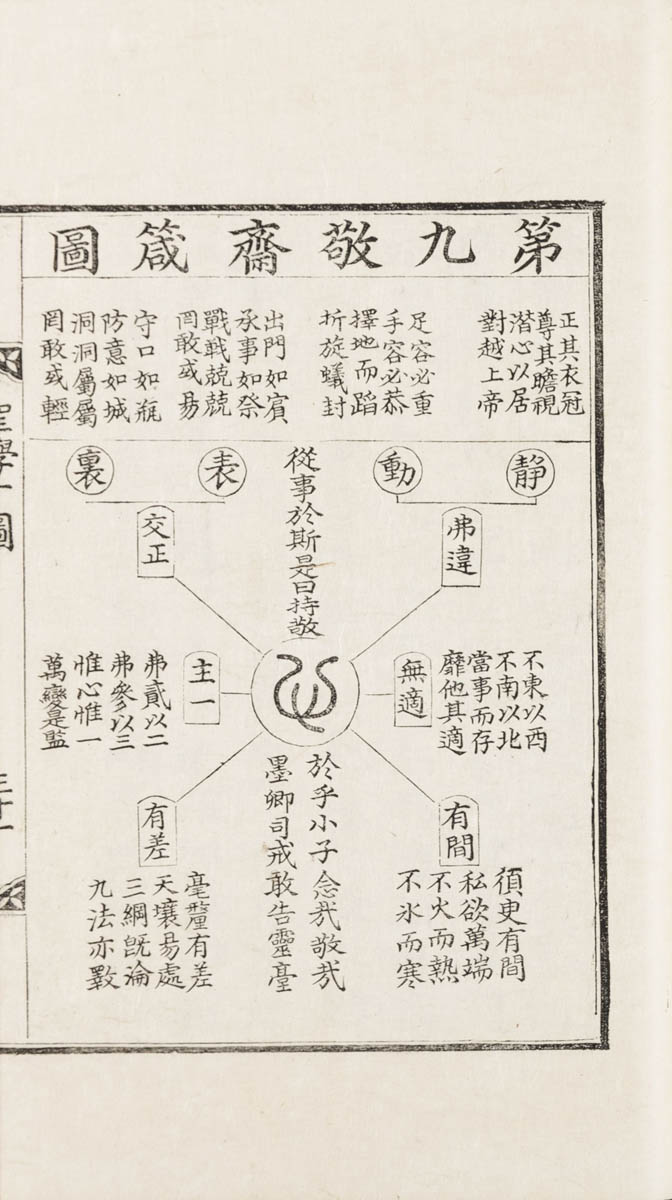 第九敬齋箴圖
正其衣冠
尊其瞻視
潛心以居
對越上帝
足容必重
手容必恭
擇地而蹈
折旋蟻封
出門如賓
承事如祭
戰戰兢兢
罔敢或易
守口如瓶
防意如城
洞洞屬屬
罔敢或輕
静
動
表
裏
弗違
交正
從事於斯是曰持敬
心
無適
主一
不東以西
不南以北
當事而存
靡他其適
弗貳以二
弗參以三
惟心惟一
萬變是監
有間
有差
須臾有間
私欲萬端
不火而熱
不氷而寒
毫釐有差
天壤易處
三綱既淪
九法亦斁
於乎小子念哉敬哉
墨卿司戒敢告靈臺
聖學十圖